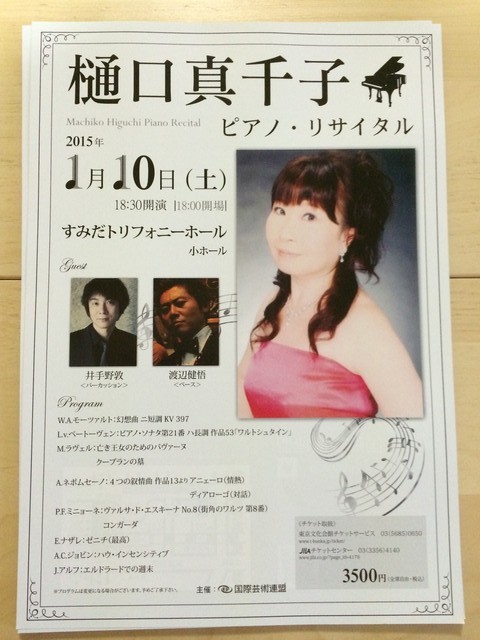 樋口真千子
Machiko Higuchi Piano Recital
ピアノ・リサイタル
2015年
1月10日（土）
18:30開演 |18:00開場|
すみだトリフォニーホール
小ホール
Guest
井手野敦
<パーカッション>
渡辺健悟
<ベース>
Program
W.A.モーツァルト：幻想曲 ニ短調 KV 397
L.v.ベートーヴェン：ピアノ・ソナタ第21番 ハ長調 作品53「ワルトシュタイン」
M.ラヴェル：亡き王女のためのパヴァーヌ
クープランの墓
A.ネポムセーノ：４つの叙情曲 作品13より アニェーロ（情熱）
ディアローゴ（対話）
P.F.ミニョーネ：ヴァルサ・ド・エスキーナ No.8（街角のワルツ 第8番）
コンガーダ
E.ナザレ：ゼニチ（最高）
A.C.ジョビン：ハウ・インセンシティブ
J.アルフ：エルドラードでの週末
※プログラムは変更になる場合がございます。予めご了承下さい。
主催： 国際芸術連盟
〈チケット取扱〉
東京文化会館チケットサービス 03（5685）0650
JILAチケットセンター 03（3356）4140
3500円（全席自由・税込）